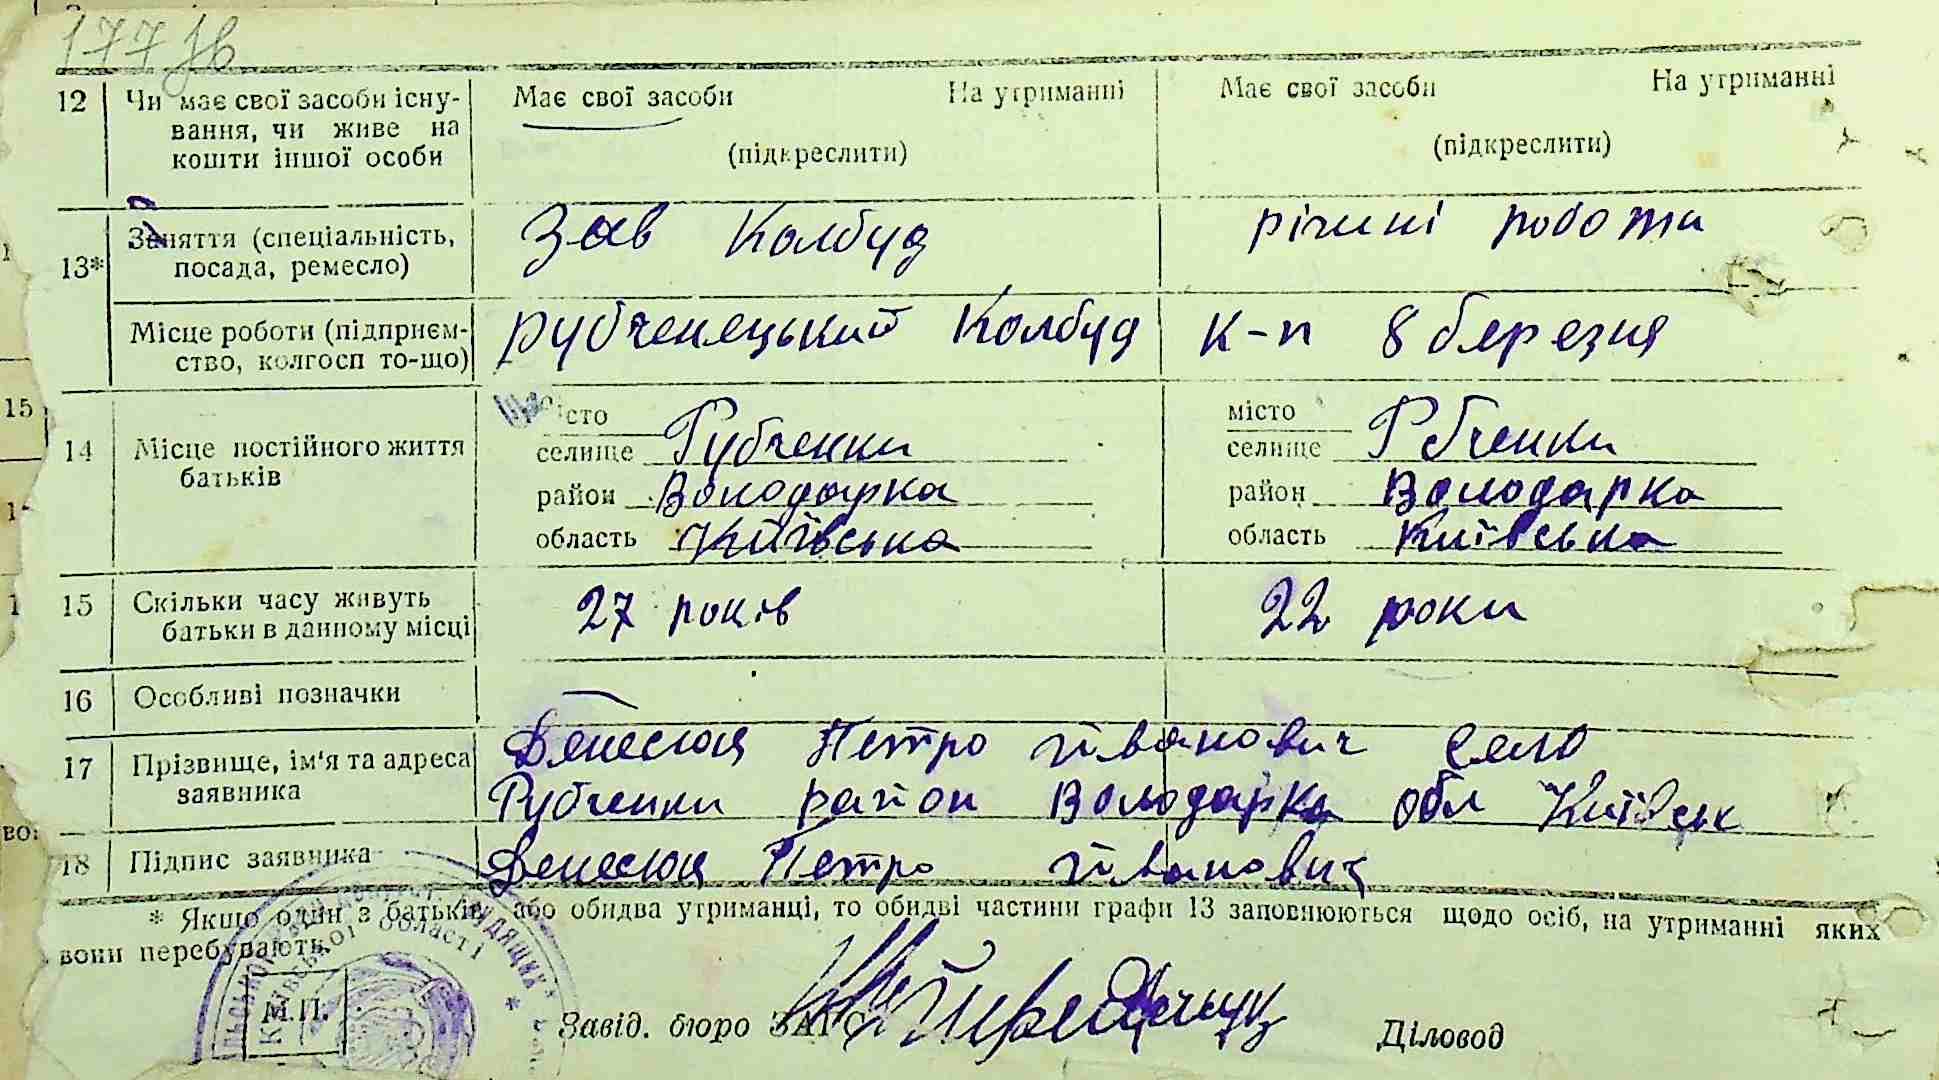 177
12 Чи має свої засоби існу- Має свої засоби На утриманні Має свої засоби На утриманні
вання, чи живе на
кошти іншої особи (підкреслити) (підкреслити)
13* Заняття (спеціальність, Зав Колбуд річині роботи
посада, ремесло)
Місце роботи (підприєм- Рубченецький Колбуд К-п 8 березня
ство, колгосп то-що)
15
14 Місце постійного життя місто місто
батьків селище Рубченки селище Рбченки
район Володарка район Володарка
область Київська область Київська
15 Скільки часу живуть 27 років 22 роки
батьки в данному місці
16 Особливі позначки —
17 Прізвище, ім'я та адреса Денесюц Петро йванович село
заявника Рубченки район Володарка обл Київськ
18 Підпис заявника Денесюц Петро йванович
* Якщо один з батьків або обидва утриманці, то обидві частини графи 13 заповнюються щодо осіб, на утриманні яких
вони перебувають.
Київської області
М.П.
Завід. бюро ЗАГС Діловод